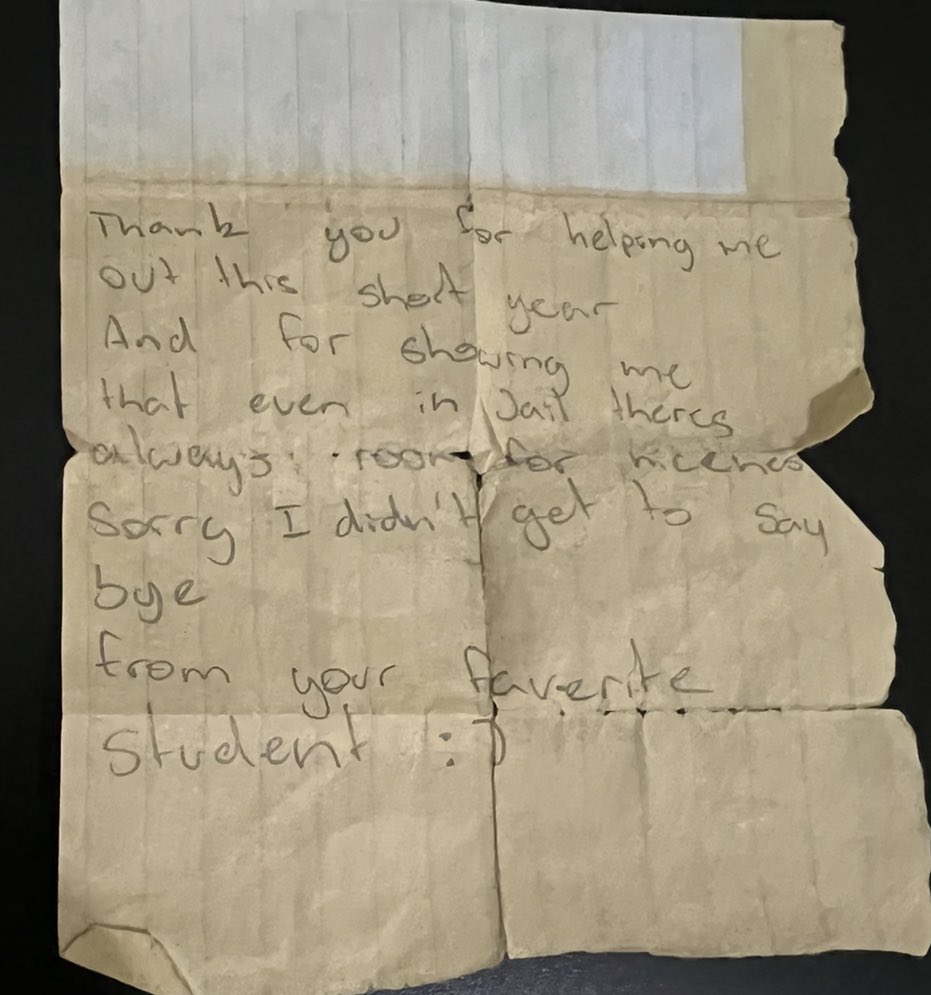 Thank you for helping me
out this short year
And for showing me
that even in Jail theres
always room for niceness
Sorry I didn't get to say
bye
from your faverite
Student :)